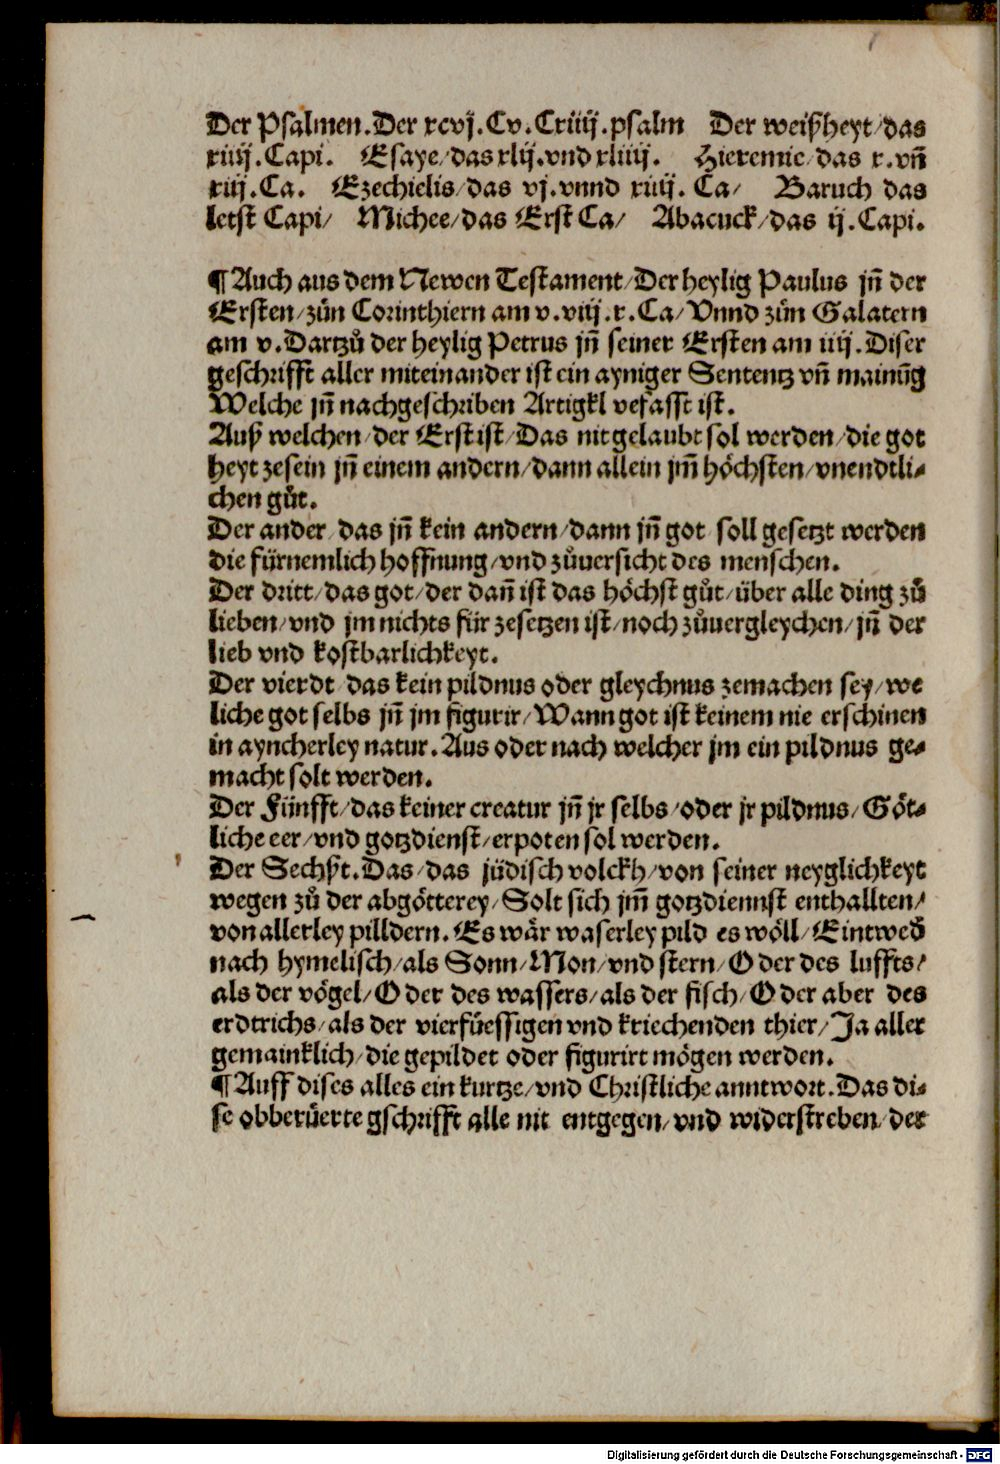 Der Psalmen. Der xcvj. Cv. Cxiiij. psalm Der weißheyt/ das
xiiij. Capi. Esaye/ das xlij. vnd xliiij. Hieremie/ das x. vñ
xiij. Ca. Ezechielis/ das vj. vnnd xiiij. Ca/ Baruch das
letst Capi/ Michee/ das Erst Ca/ Abacuck/ das ij. Capi.
¶ Auch aus dem Newen Testament/ Der heylig Paulus jñ der
Ersten/ zůn Corinthiern am v. viij. x. Ca/ Vnnd zům Galatern
am v. Dartzů der heylig Petrus jñ seiner Ersten am iiij. Diser
geschrifft aller miteinander ist ein ayniger Sententz vñ mainũg
Welche jñ nachgeschriben Artigkl vefasst ist.
Auß welchen/ der Erst ist/ Das nit gelaubt sol werden/ die got
heyt zesein jñ einem andern/ dann allein jm̃ höchsten/ vnendtli-
chen gůt.
Der ander/ das jñ kein andern/ dann jñ got soll gesetzt werden
die fürnemlich hoffnung/ vnd zůuersicht des menschen.
Der dritt/ das got/ der dañ ist das höchst gůt/ über alle ding zů
lieben/ vnd jm nichts für zesetzen ist/ noch zůuergleychen/ jñ der
lieb vnd kostbarlichkeyt.
Der vierdt das kein pildnus oder gleychnus zemachen sey/ we
liche got selbs jñ jm figurir/ Wann got ist keinem nie erschinen
in ayncherley natur. Aus oder nach welcher jm ein pildnus ge-
macht solt werden.
Der Fünfft/ das keiner creatur jñ jr selbs/ oder jr pildnus/ Göt-
liche eer/ vnd gotzdienst/ erpoten sol werden.
Der Sechßt. Das/ das jüdisch volckh/ von seiner neyglichkeyt
wegen zů der abgötterey/ Solt sich jm̃ gotzdiennst enthallten/
von allerley pilldern. Es wär waserley pild es wöll/ Eintwed̃
nach hymelisch/ als Sonn/ Mon/ vnd stern/ Oder des luffts/
als der vögel/ Oder des wassers/ als der fisch/ Oder aber des
erdtrichs/ als der vierfüessigen vnd kriechenden thier/ Ja aller
gemainklich/ die gepildet oder figurirt mögen werden.
¶ Auff dises alles ein kurtze/ vnd Christliche anntwort. Das di-
se obberüerte gschrifft alle nit entgegen/ vnd widerstreben/ der
Digitalisierung gefördert durch die Deutsche Forschungsgemeinschaft - DFG